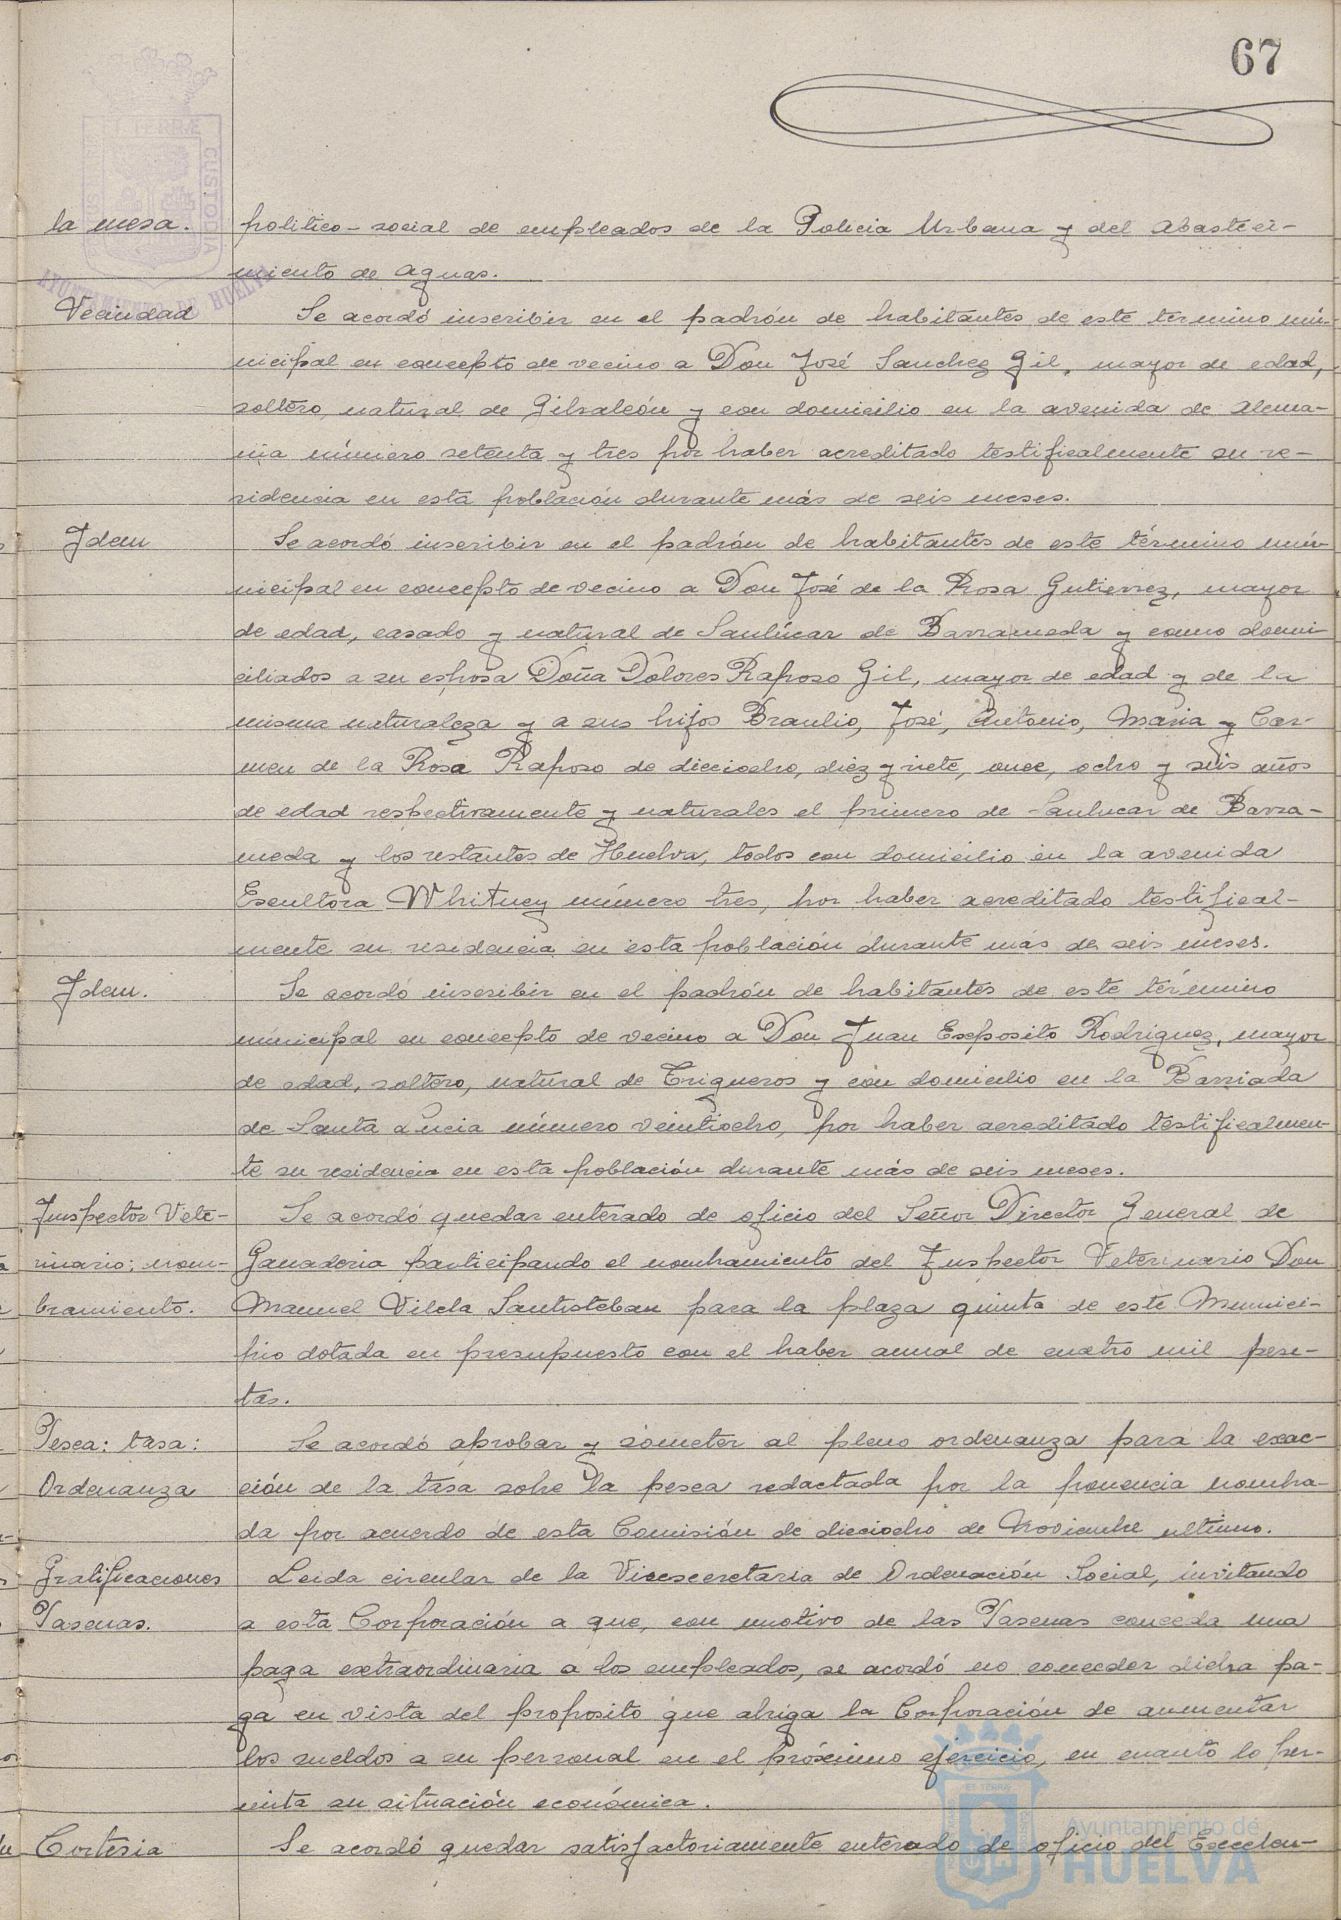 67
la mesa. politico-social de empleados de la Policia Urbana y del Abasteci-
miento de aguas.
Vecindad Se acordó inscribir en el padrón de habitantes de este término mu-
nicipal en concepto de vecino a Don José Sanchez Gil, mayor de edad,
soltero, natural de Gibraleón y con domicilio en la avenida de Alema-
nia número setenta y tres por haber acreditado testificalmente su re-
sidencia en esta población durante más de seis meses.
Idem Se acordó inscribir en el padrón de habitantes de este término mu-
nicipal en concepto de vecino a Don José de la Rosa Gutierrez, mayor
de edad, casado y natural de Sanlúcar de Barrameda y como domi-
ciliados a su esposa Doña Dolores Raposo Gil, mayor de edad y de la
misma naturaleza y a sus hijos Braulio, José, Antonio, Maria y Car-
men de la Rosa Raposo de dieciocho, diez y siete, once, ocho y seis años
de edad respectivamente y naturales el primero de Sanlucar de Barra-
meda y los restantes de Huelva, todos con domicilio en la avenida
Escultora Whitney número tres, por haber acreditado testifical-
mente su residencia en esta población durante más de seis meses.
Idem. Se acordó inscribir en el padrón de habitantes de este término
municipal en concepto de vecino a Don Juan Exposito Rodriguez, mayor
de edad, soltero, natural de Trigueros y con domicilio en la Barriada
de Santa Lucia número veintiocho, por haber acreditado testificalmen-
te su residencia en esta población durante más de seis meses.
Inspector Vete- Se acordó quedar enterado de oficio del Señor Director General de
rinario; nom- Ganaderia participando el nombramiento del Inspector Veterinario Don
bramiento. Manuel Vilela Santisteban para la plaza quinta de este Munici-
pio dotada en presupuesto con el haber anual de cuatro mil pese-
tas.
Pesca: tasa: Se acordó aprobar y someter al pleno ordenanza para la exac-
Ordenanza ción de la tasa sobre la pesca redactada por la ponencia nombra-
da por acuerdo de esta Comisión de dieciocho de Noviembre ultimo.
Gratificaciones Leida circular de la Vicesecretaria de Ordenación Social, invitando
Pascuas. a esta Corporación a que, con motivo de las Pascuas conceda una
paga extraordinaria a los empleados, se acordó no conceder dicha pa-
ga en vista del proposito que abriga la Corporación de aumentar
los sueldos a su personal en el próximo ejercicio, en cuanto lo per-
mita su situación económica.
Cortesia Se acordó quedar satisfactoriamente enterado de oficio del Excelen-
ET TERRÆ
CUSTODIA
AYUNTAMIENTO DE HUELVA
Ayuntamiento de
HUELVA